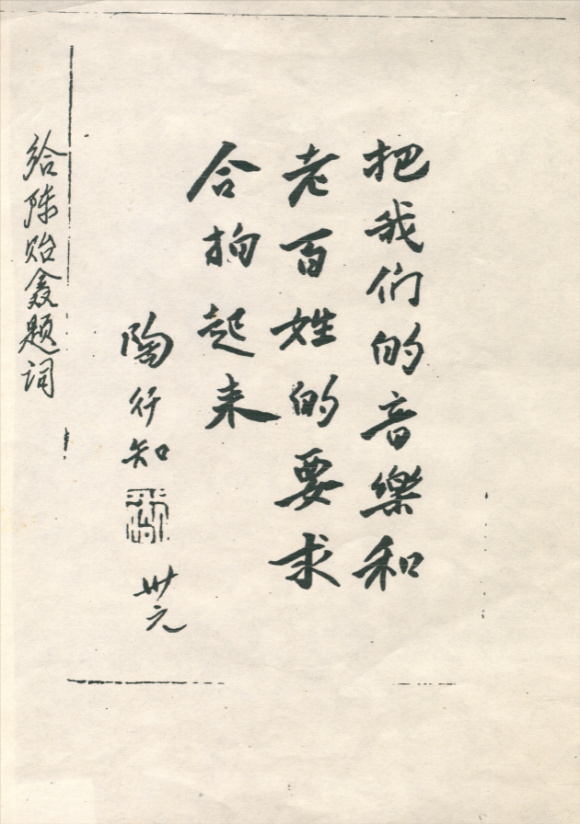 把我们的音樂和
老百姓的要求
合拍起来
陶行知
卅元
给陈贻鑫题词